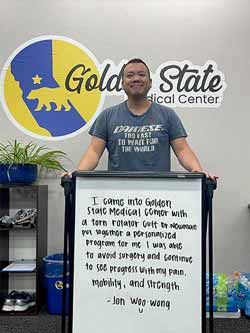 Golden State
Medical Center
DAINESE
TOO FAST
TO WAIT FOR
THE WORLD
I came into Golden
State Medical Center with
a torn rotator cuff Dr Newman
put together a personalized
program for me I was able
to avoid surgery and continue
to see progress with my pain,
mobility, and strength.
- Jon Woo Wong